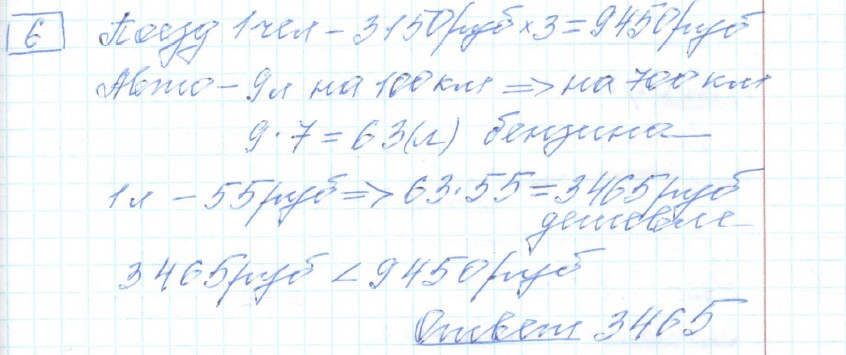 6 Поезд 1чел - 3150руб × 3 = 9450руб
Авто - 9л на 100км => на 700км
9 · 7 = 63(л) бензина
1л - 55руб => 63 · 55 = 3465руб
дешевле
3465руб < 9450руб
Ответ 3465